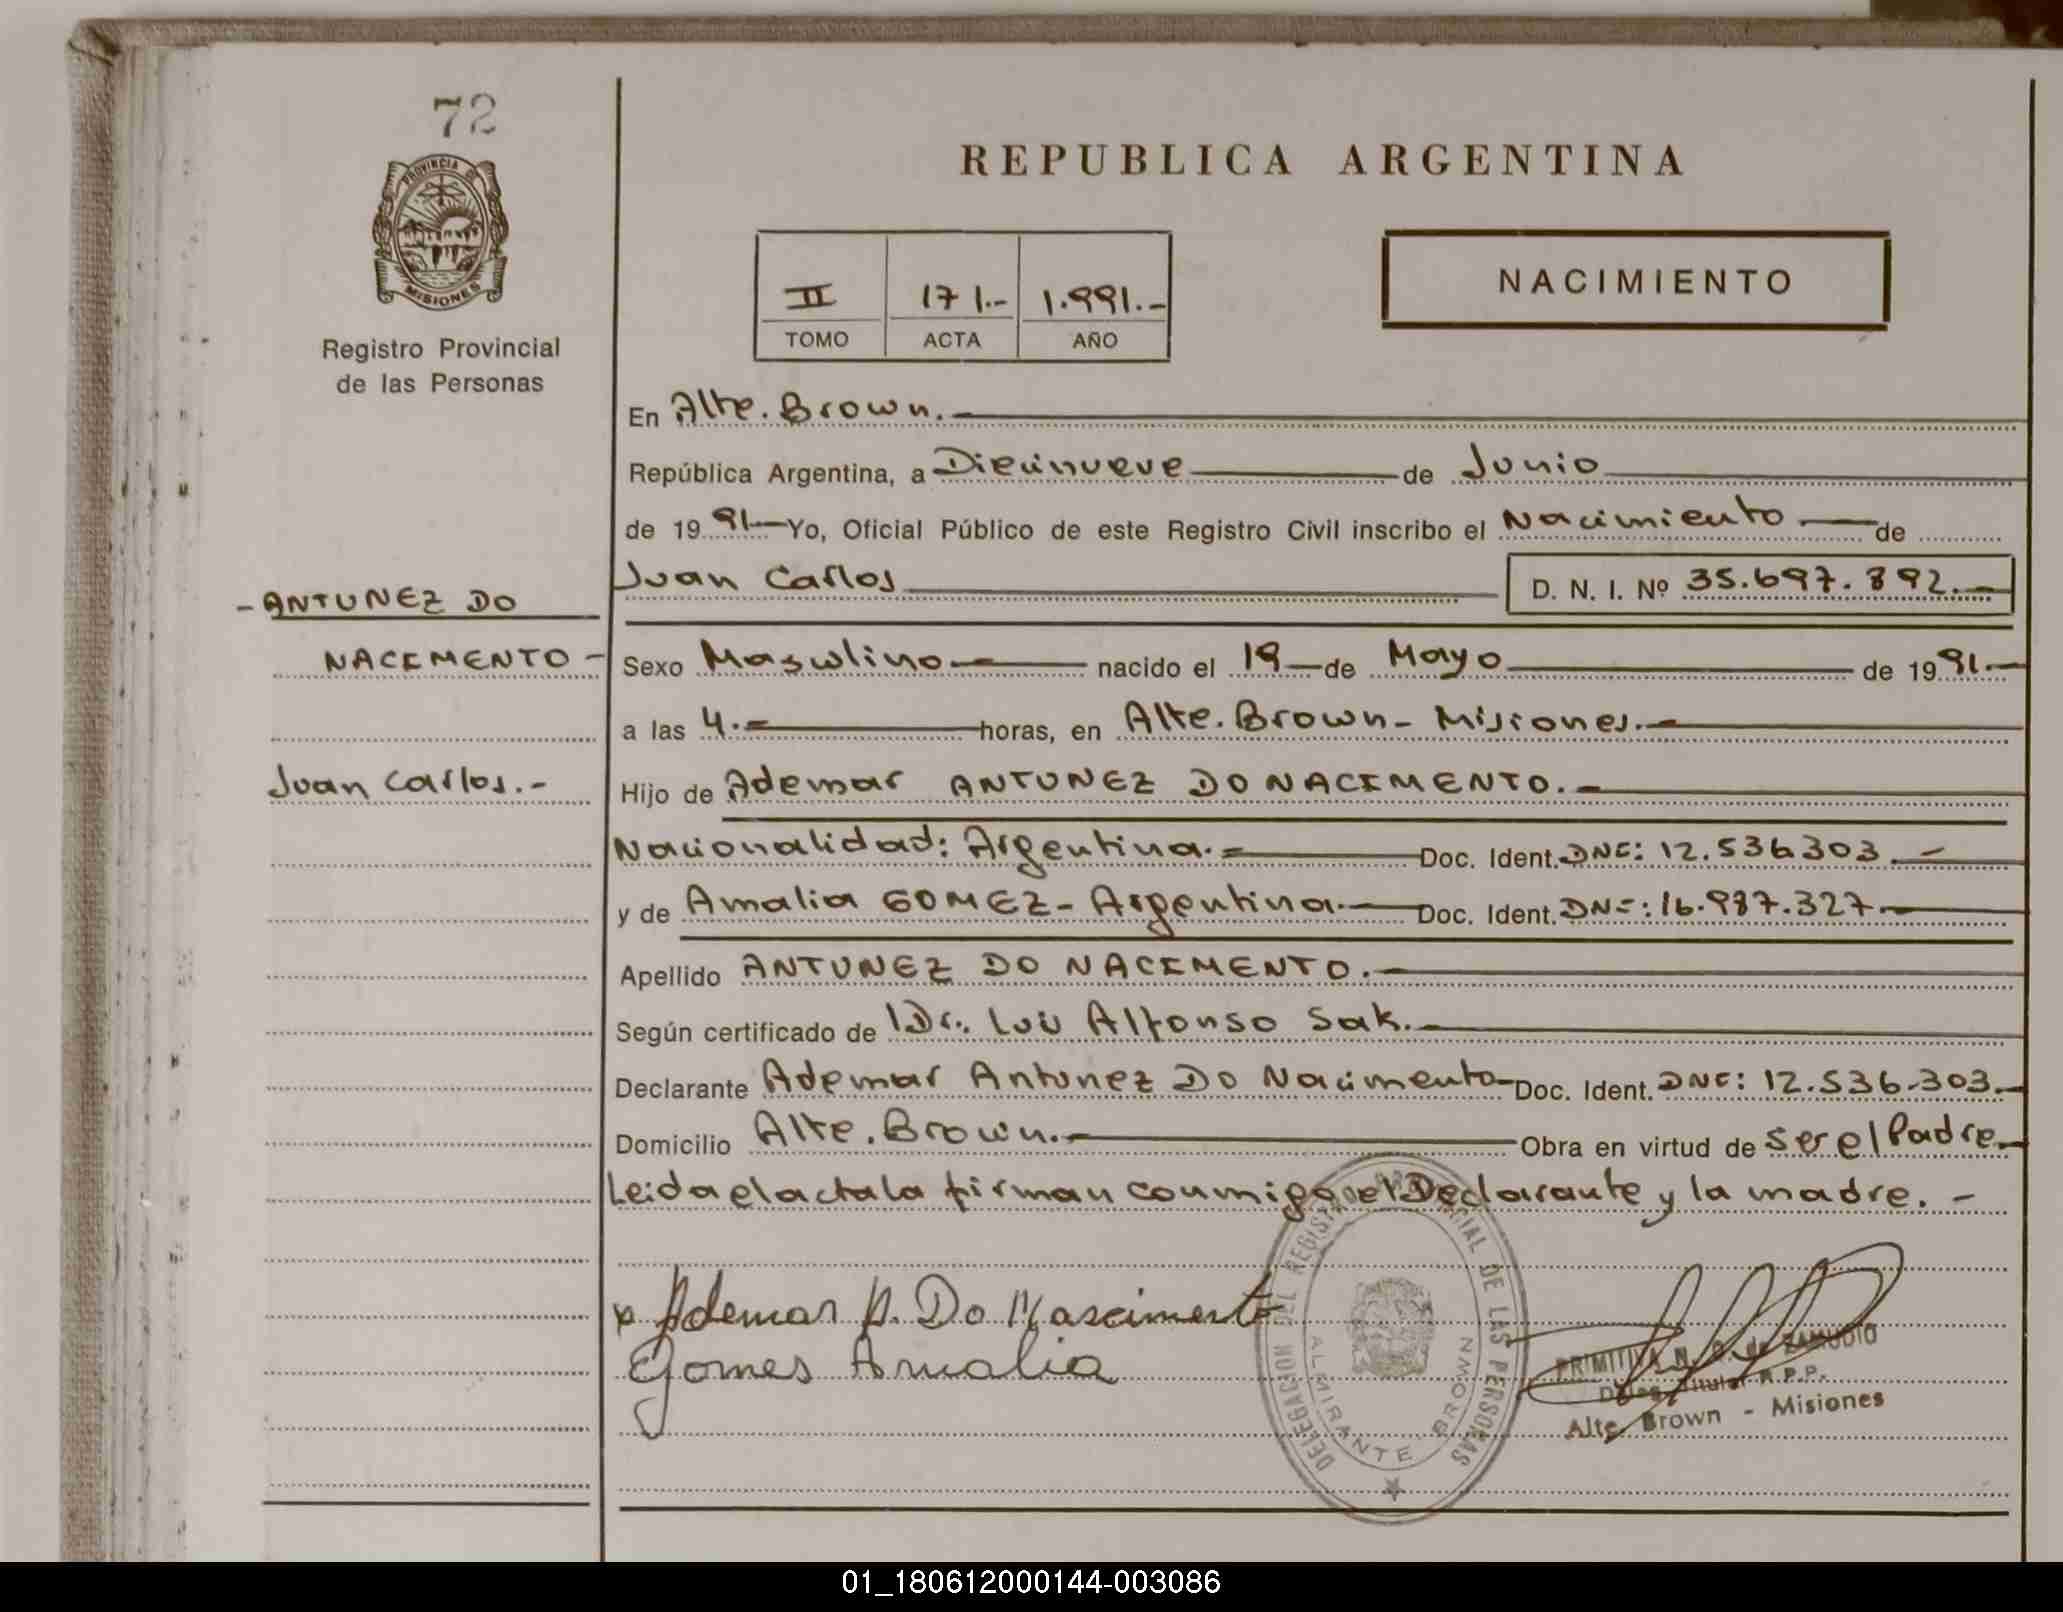 72
PROVINCIA DE
MISIONES
Registro Provincial
de las Personas
- ANTUNEZ DO
NACIMENTO -
Juan Carlos.-
REPUBLICA ARGENTINA
II 171.- 1.991.-
TOMO ACTA AÑO
NACIMIENTO
En Alte. Brown.-
República Argentina, a Diecinueve de Junio
de 19 91- Yo, Oficial Público de este Registro Civil inscribo el Nacimiento - de
Juan Carlos D. N. I. Nº 35.697.892.-
Sexo Masculino - nacido el 19 - de Mayo de 19 91.-
a las 4.- horas, en Alte. Brown - Misiones.-
Hijo de Ademar ANTUNEZ DO NACIMENTO.-
Nacionalidad: Argentina.- Doc. Ident. DNI: 12.536303.-
y de Amalia GOMEZ - Argentina.- Doc. Ident. DNI: 16.987.327.-
Apellido ANTUNEZ DO NACIMENTO.-
Según certificado de Dr. Luis Alfonso Sak.-
Declarante Ademar Antunez Do Nacimento - Doc. Ident. DNI: 12.536.303.-
Domicilio Alte. Brown.- Obra en virtud de ser el Padre.-
Leida el acta la firman conmigo el Declarante y la madre. -
x Ademar A. Do Nascimento
Gomes Amalia
DELEGACION DEL REGISTRO PROVINCIAL DE LAS PERSONAS
ALMIRANTE BROWN
PRIMITIVA N. de ZAMUDIO
Deleg. Titular R.P.P.
Alte. Brown - Misiones
01_180612000144-003086